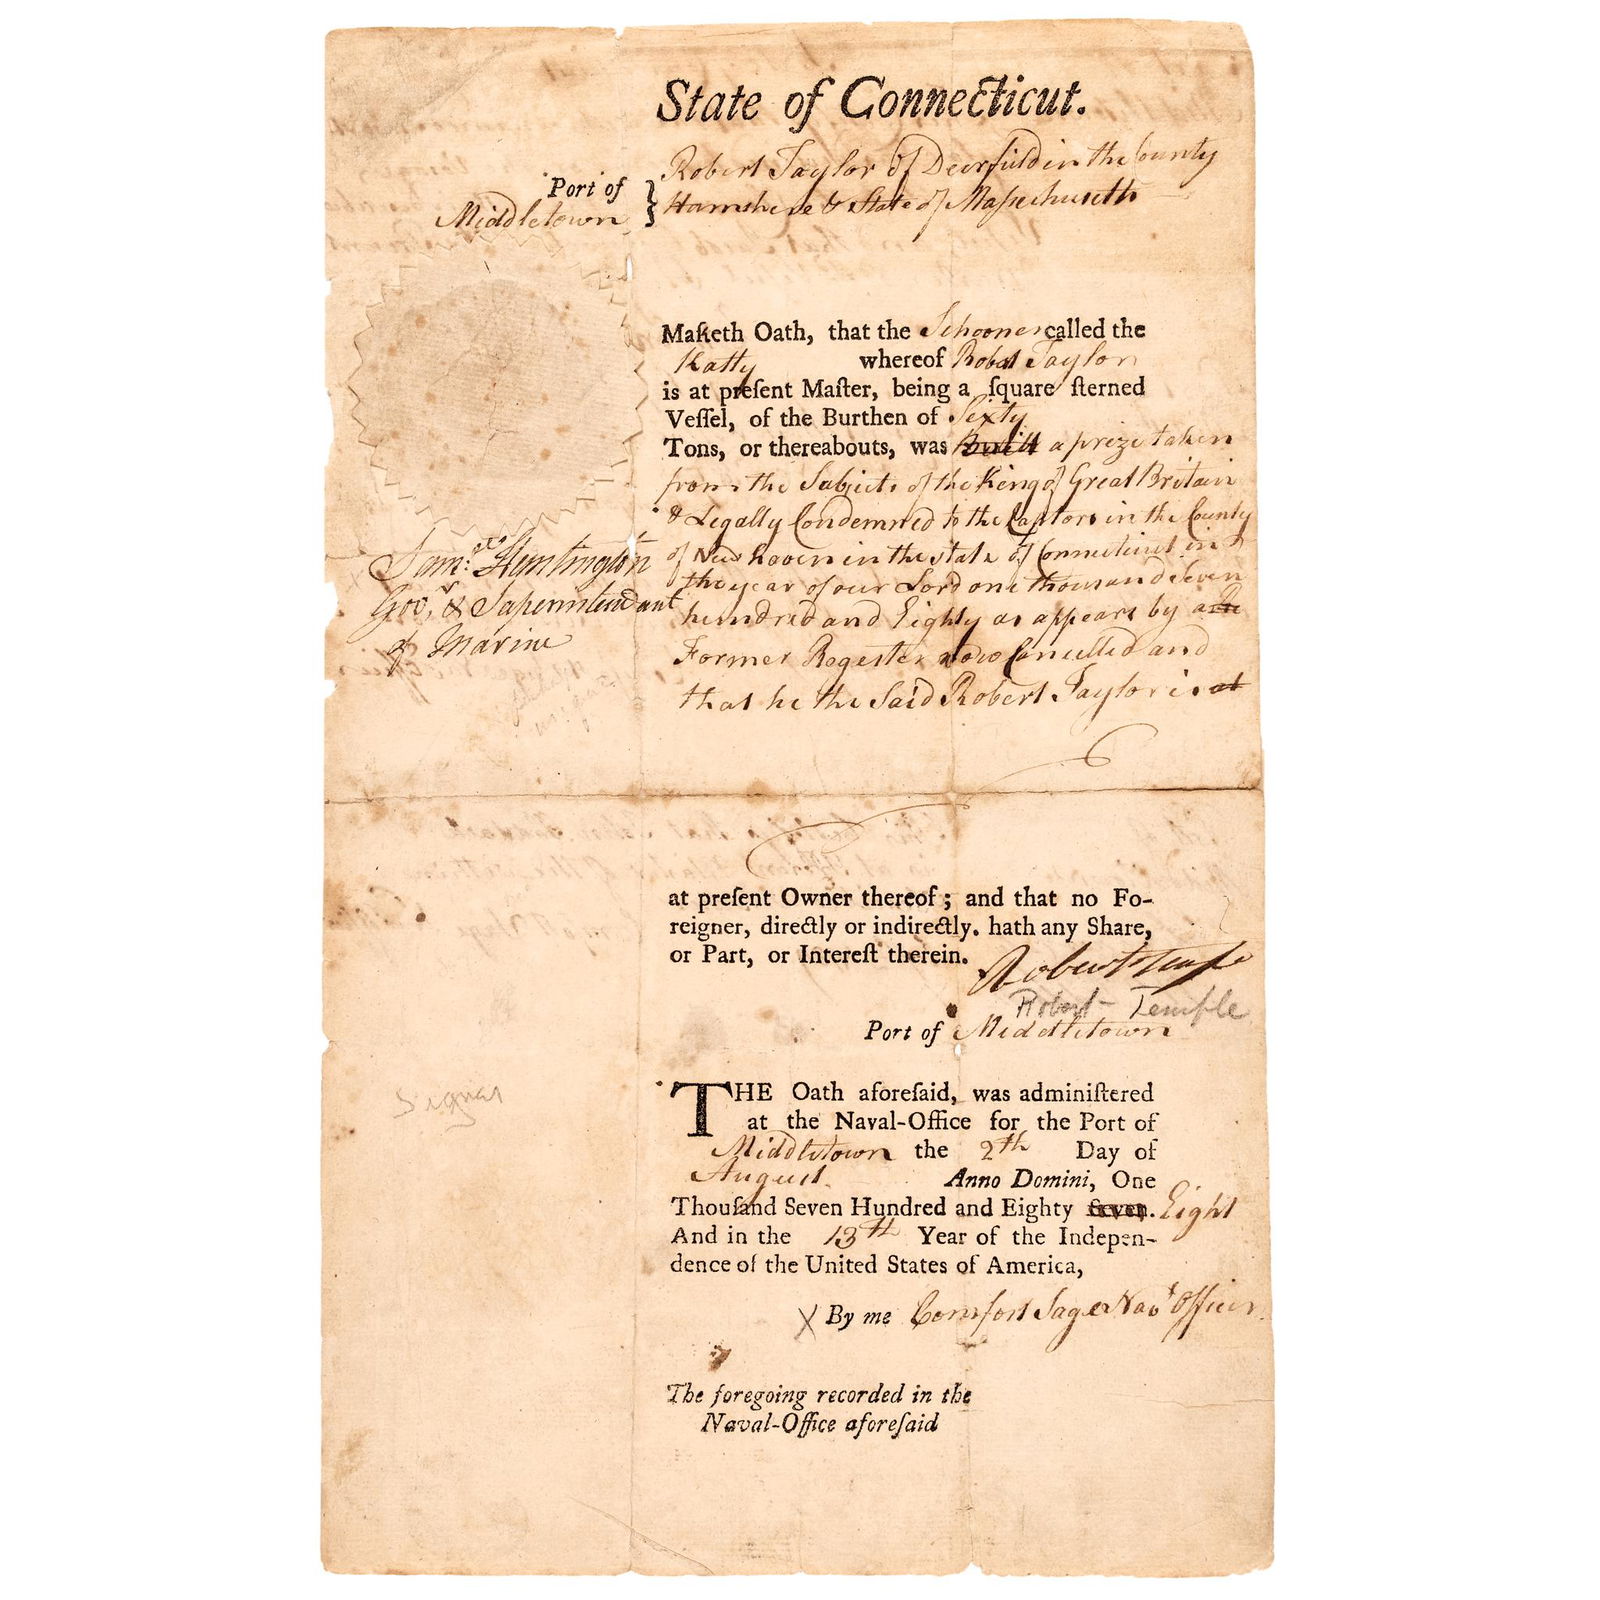 State of Connecticut.
Port of
Middletown
}
Robert Taylor of Deerfield in the County
Hamshere & State of Massechusetts
Maketh Oath, that the Schooner called the
Katty whereof Robert Taylor
is at preſent Maſter, being a ſquare ſterned
Veſſel, of the Burthen of Sexty
Tons, or thereabouts, was Built a prize taken
from the Subjects of the King of Great Britain
& Legally Condemned to the Captors in the County
of New haven in the state of Connecticut in
the year of our Lord one thousand Seven
hundred and Eighty as appears by a
Former Regester now Cancelled and
that he the Said Robert Taylor is at
Sam: Huntington
Gov,r & Superintendant
of Marine
at preſent Owner thereof; and that no Fo-
reigner, directly or indirectly. hath any Share,
or Part, or Intereſt therein.
Robert
Robert Temple
Port of Middletown
Signer
THE Oath aforeſaid, was adminiſtered
at the Naval-Office for the Port of
Middletown the 2th Day of
August Anno Domini, One
Thouſand Seven Hundred and Eighty Seven. Eight
And in the 13th Year of the Indepen-
dence of the United States of America,
X By me Comfort Sage Navl Officer
The foregoing recorded in the
Naval-Office aforeſaid